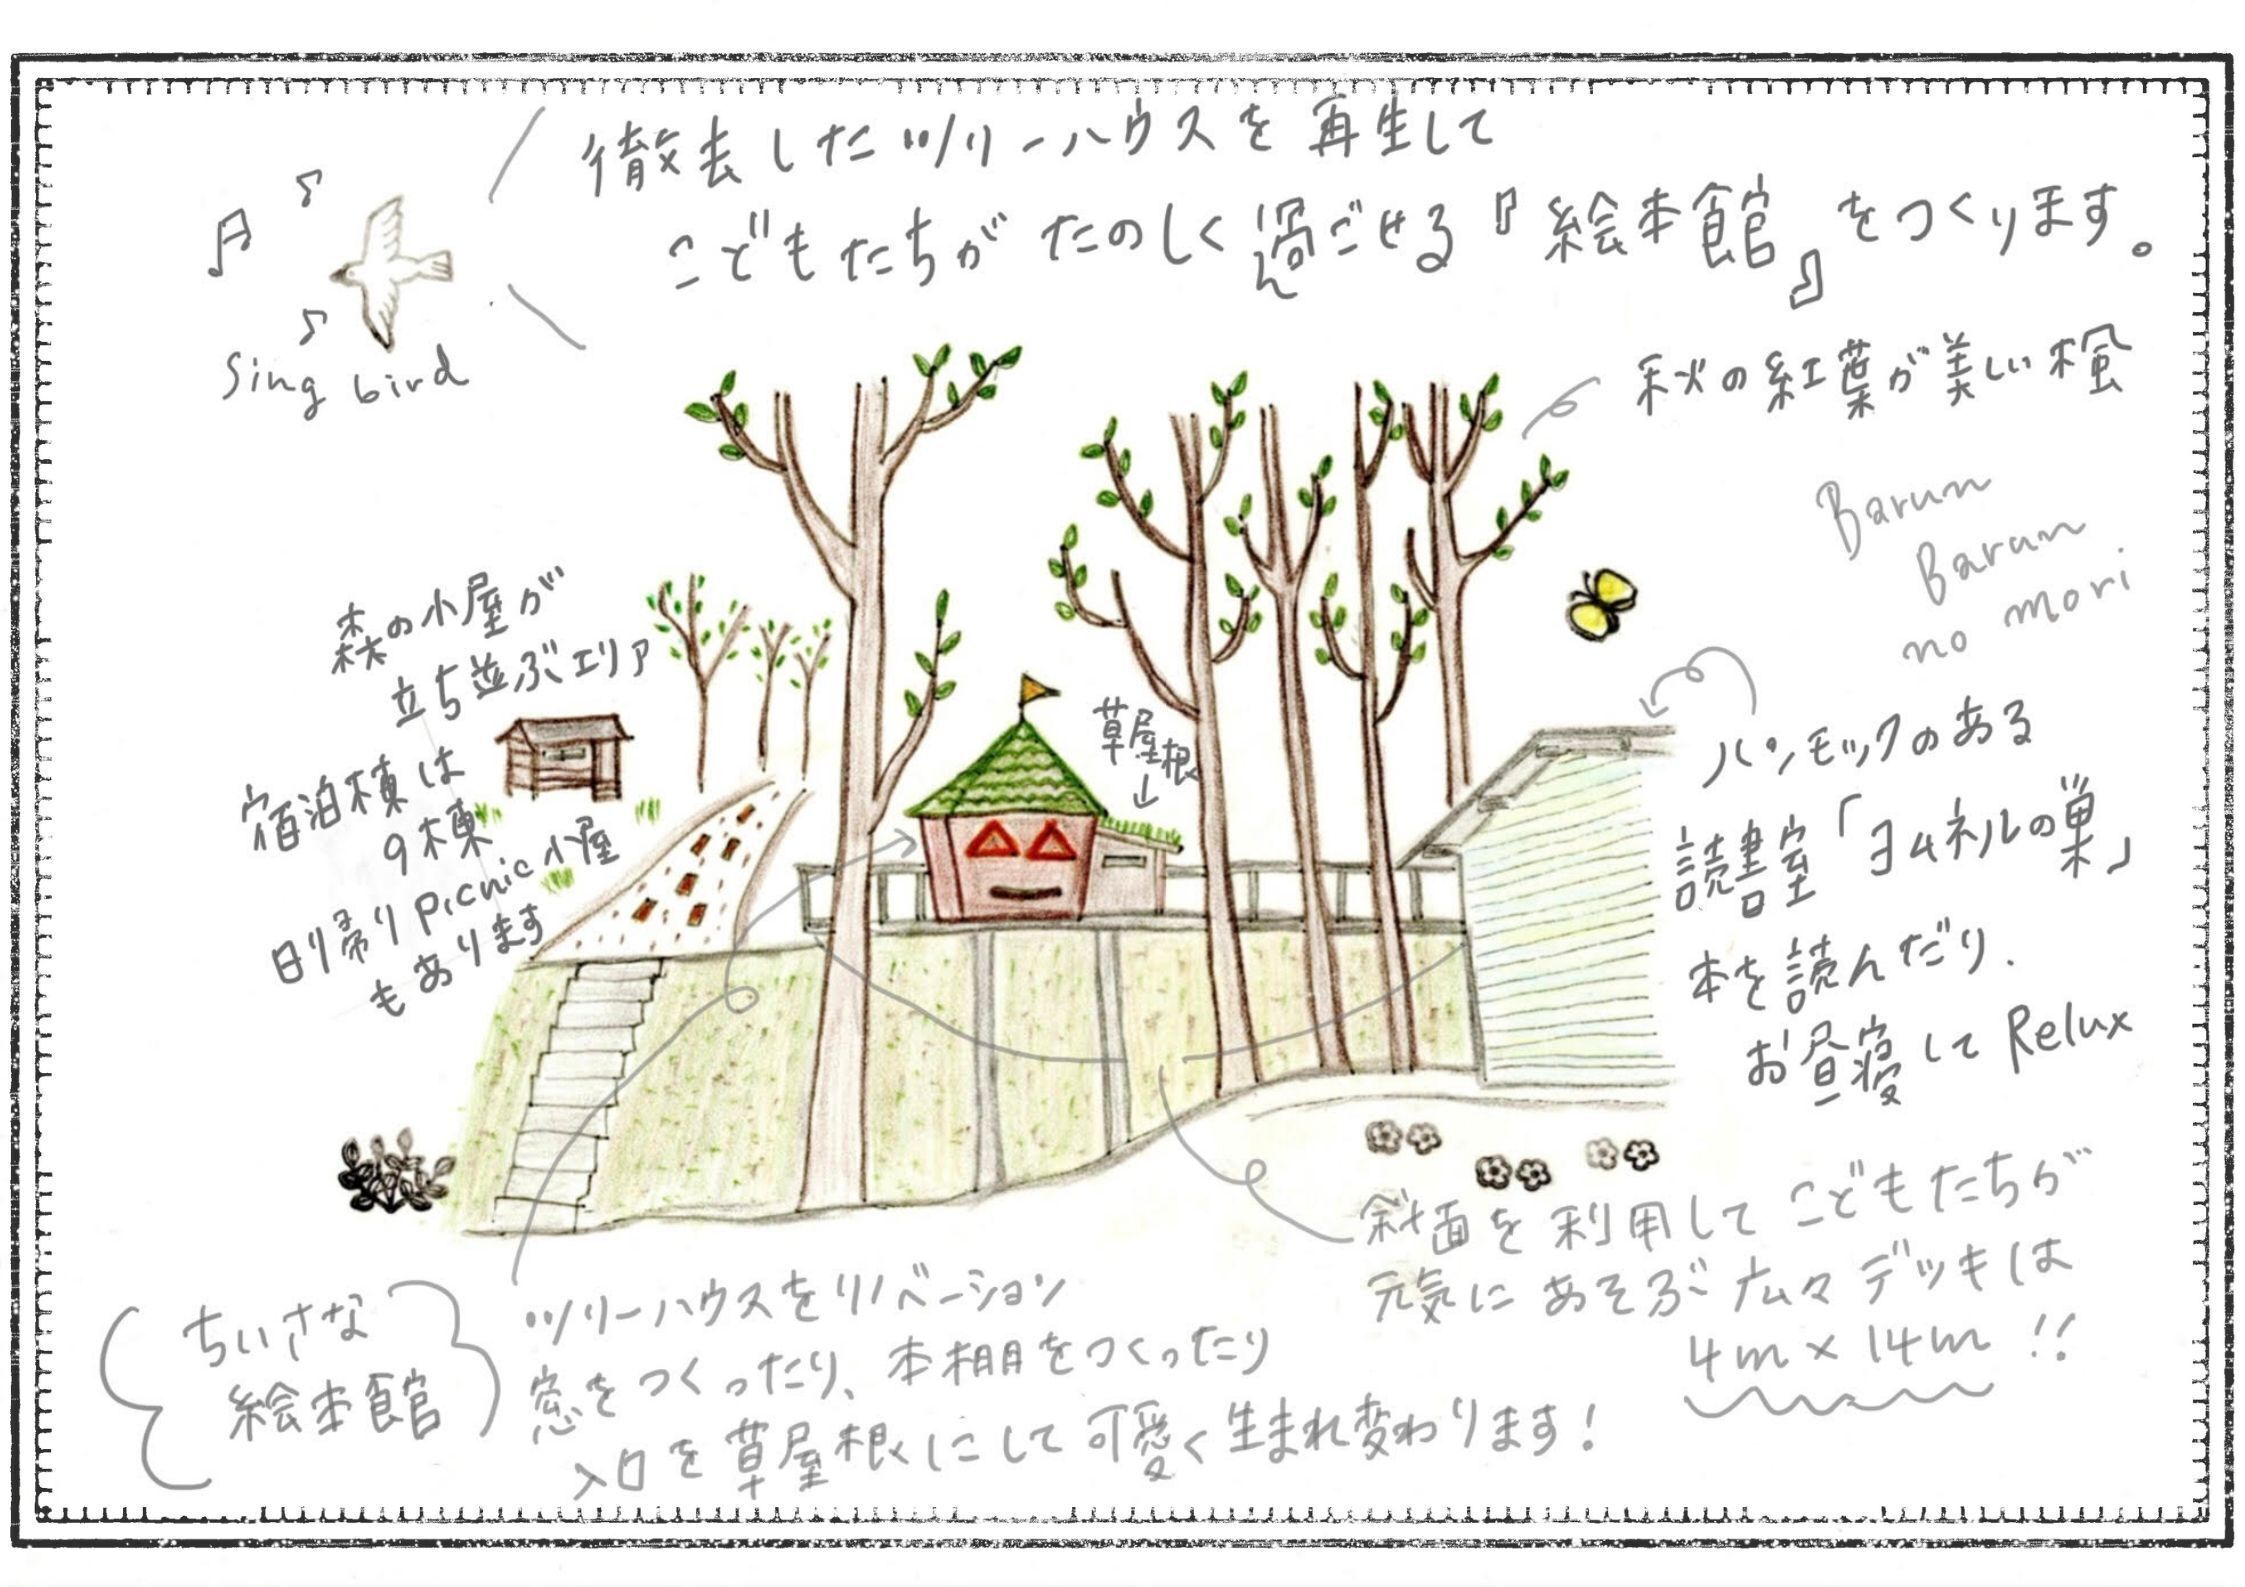 撤去したツリーハウスを再生して
こどもたちがたのしく過ごせる『絵本館』をつくります。
Sing bird
秋の紅葉が美しい楓
Barun
Barun
no mori
森の小屋が
立ち並ぶエリア
宿泊棟は
9棟
日帰りPicnic小屋
もあります
草屋根
ハンモックのある
読書室「ヨムネルの巣」
本を読んだり、
お昼寝してRelux
斜面を利用してこどもたちが
元気にあそぶ広々デッキは
4m×14m!!
ちいさな
絵本館
ツリーハウスをリノベーション
窓をつくったり、本棚をつくったり
入口を草屋根にして可愛く生まれ変わります!